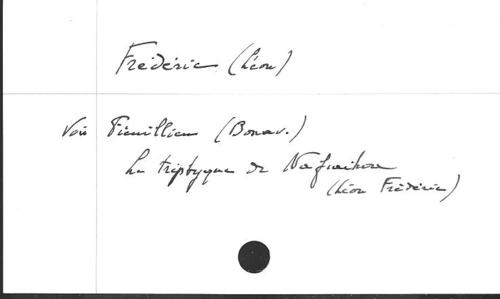 Frédéric (Léon)
Voir Fieuillien (Bonav.)
Le triptyque de Nafraiture
(Léon Frédéric)